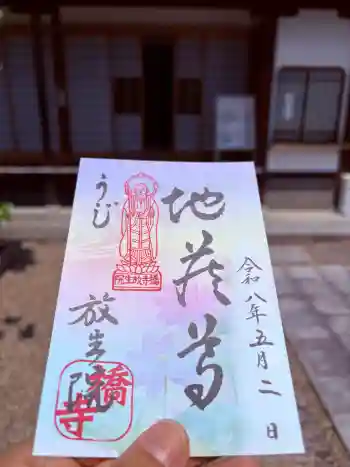 令和八年五月二日
地蔵尊
うじ
放生院
橋寺